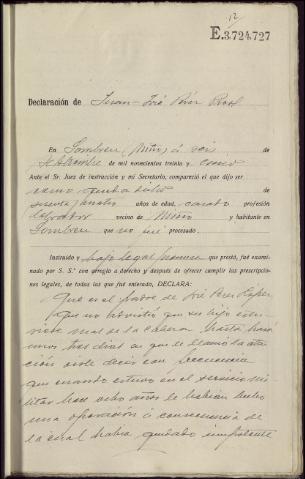 12
E.3.724,727
Declaración de Juan José Pérez
En Sombreu (Miño) á seis de
Septiembre de mil novecientos treinta y cinco
Ante el Sr. Juez de instrucción y mi Secretario, compareció el que dijo ser
como queda dicho de
sesenta años de edad, casado profesión
labrador vecino de Miño y habitante en
Sombreu que no fué procesado.
Instruido y bajo legal promesa que prestó, fué examinado
por S. S.ª con arreglo a derecho y después de ofrecer cumplir las prescripciones
legales, de todas las que fué enterado, DECLARA:
Que es el padre de José Pérez López
que no advirtió que su hijo estuviese
mal de la cabeza hasta hace
unos tres días en que le llamó la atención
oirle decir con frecuencia
que cuando estuvo en el servicio militar
hace ocho años le habían hecho
una operación á consecuencia de
la cual había quedado impotente